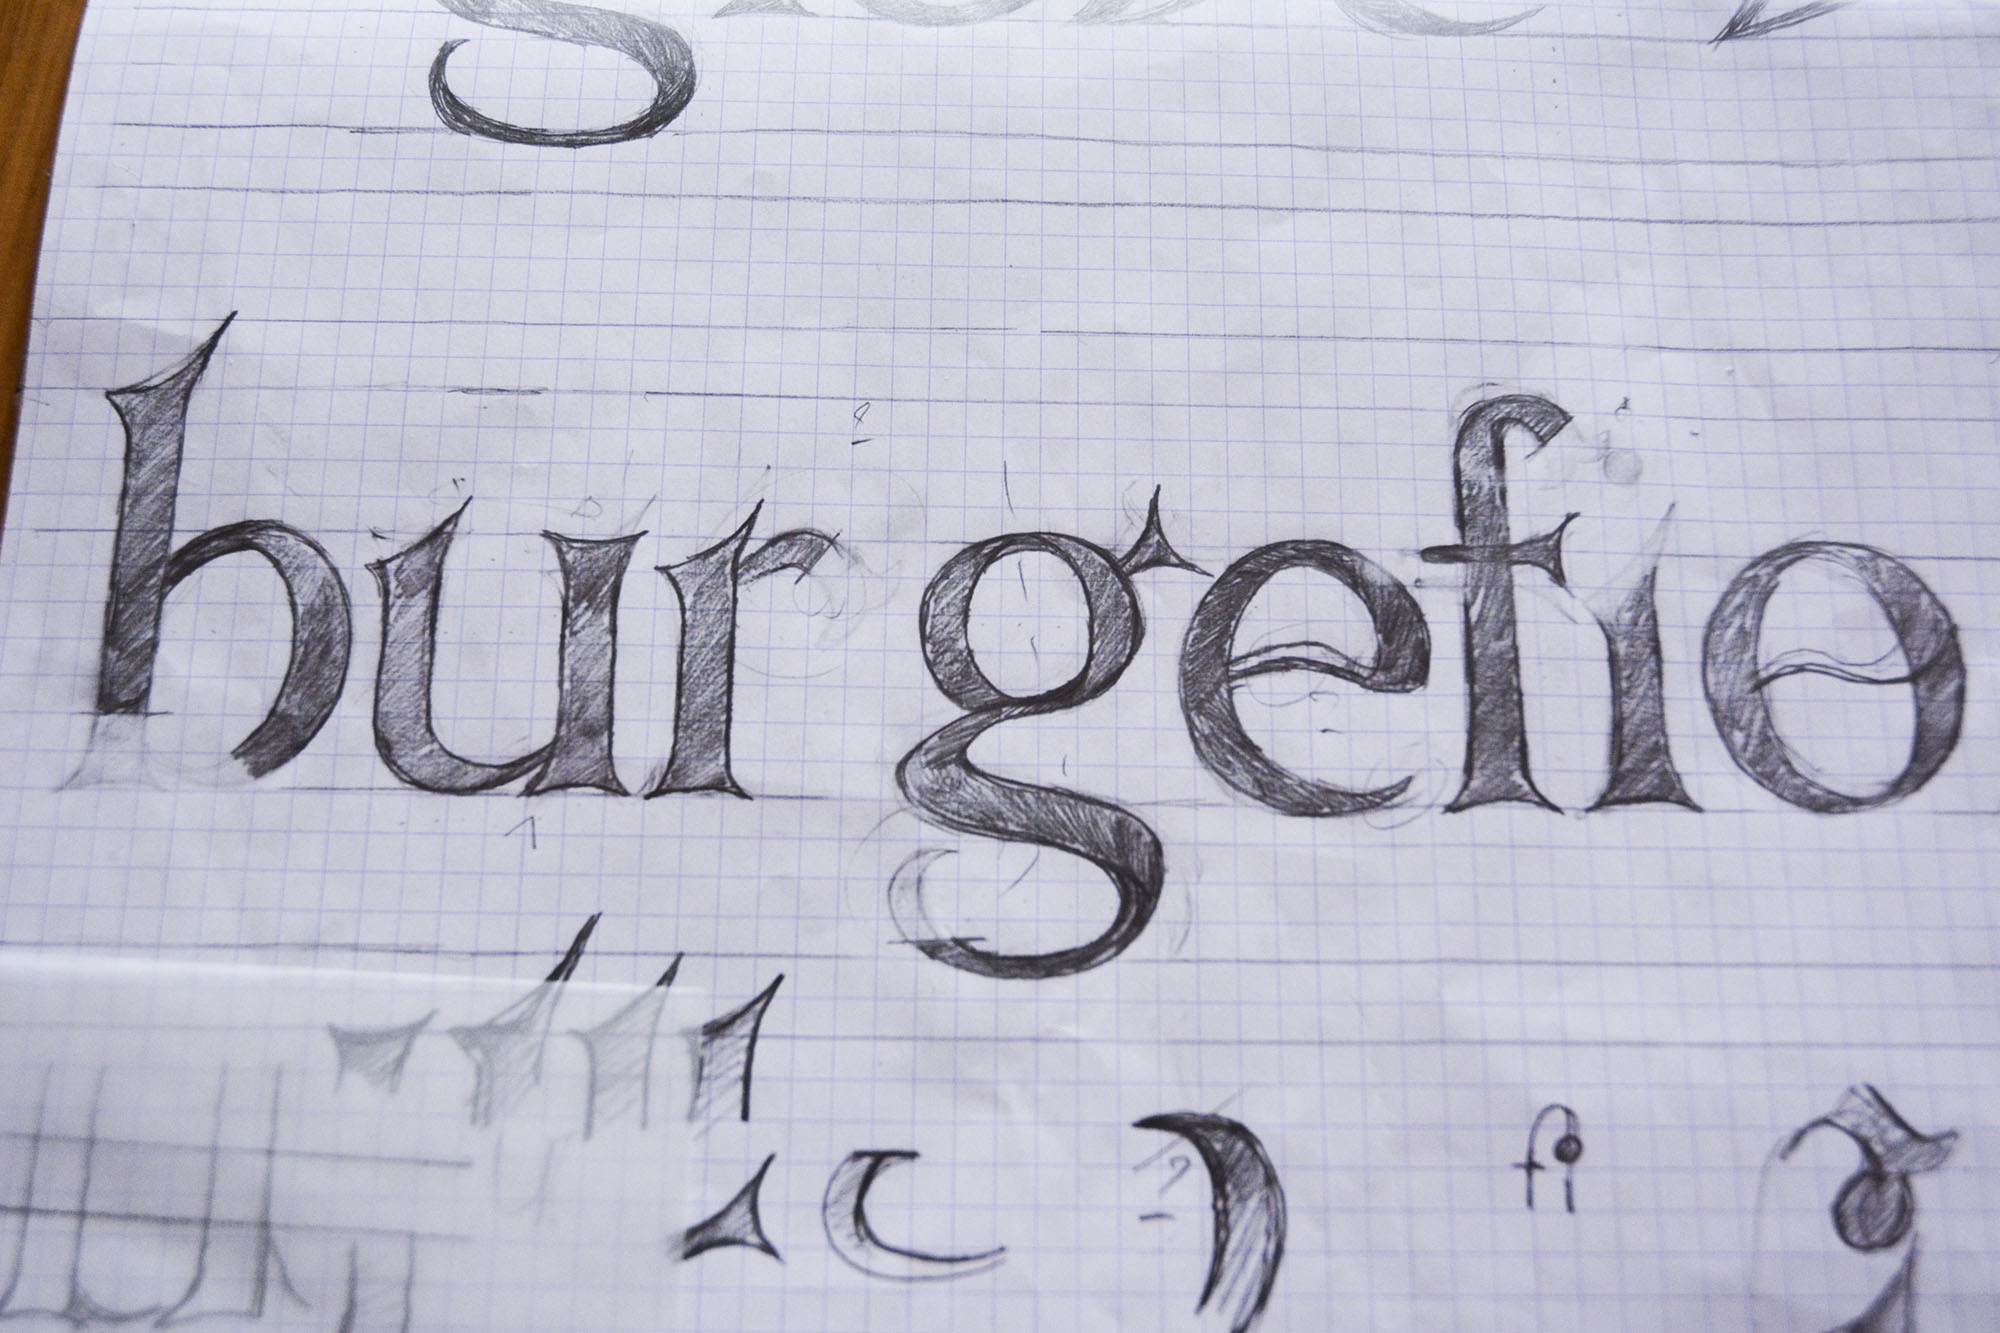 burgefio
fi